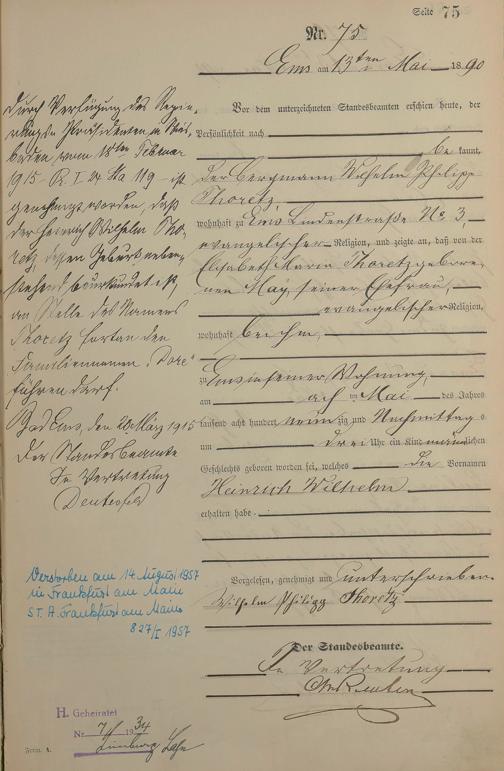 Seite 75
Nr. 75
Ems am 13ten Mai 1890
Vor dem unterzeichneten Standesbeamten erschien heute, der
Persönlichkeit nach
be kannt,
der Bergmann Wilhelm Philipp
Thoretz,
wohnhaft zu Ems Lindenstraße No 3,
evangelischer Religion, und zeigte an, daß von der
Elisabeth Maria Thoretz gebore-
nen May, seiner Ehefrau,
evangelischer Religion,
wohnhaft bei ihm,
zu Ems in seiner Wohnung,
am acht ten Mai des Jahres
tausend acht hundert neun zig und Nachmittags
um drei Uhr ein Kind männlichen
Geschlechts geboren worden sei, welches die Vornamen
Heinrich Wilhelm
erhalten habe.
Vorgelesen, genehmigt und unterschrieben.
Wilhelm Philipp Thoretz
Der Standesbeamte.
In Vertretung
Durch Verfügung des Regie-
rungs Präsidenten in Wies-
baden, vom 18ten Februar
1915 - Pr. I 4 Sta 119 - ist
genehmigt worden, daß
der Heinrich Wilhelm Tho-
retz, dessen Geburt neben-
stehend beurkundet ist,
an Stelle des Namens
Thoretz fortan den
Familiennamen „Dore“
führen darf.
Bad Ems, den 20 März 1915
Der Standesbeamte
In Vertretung
Verstorben am 14. August 1957
in Frankfurt am Main
ST. A. Frankfurt am Main
827/I 1957
H. Geheiratet
Nr. 7/1934
Limburg Lahn
Form. A.